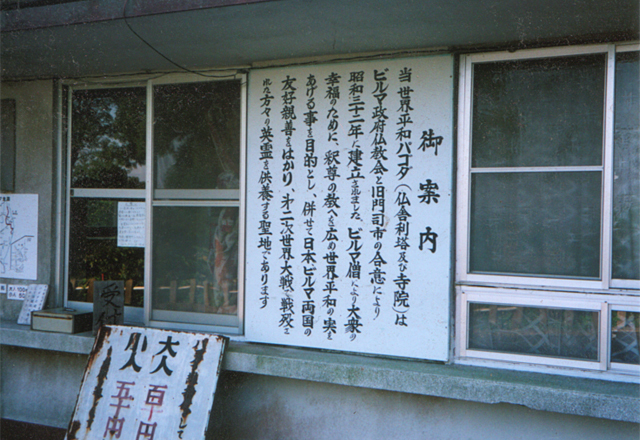 御案内
当世界平和パゴダ(仏舎利塔及び寺院)は
ビルマ政府仏教会と旧門司市の合意により
昭和三十二年に建立されました、ビルマ僧により大衆の
幸福のために、釈尊の教へを広め世界平和の実を
あげる事を目的とし、併せて日本ビルマ両国の
友好親善をはかり、才二次世界大戦で戦死さ
れた方々の英霊を供養する聖地であります
受付
大人 百円
小人 五十円